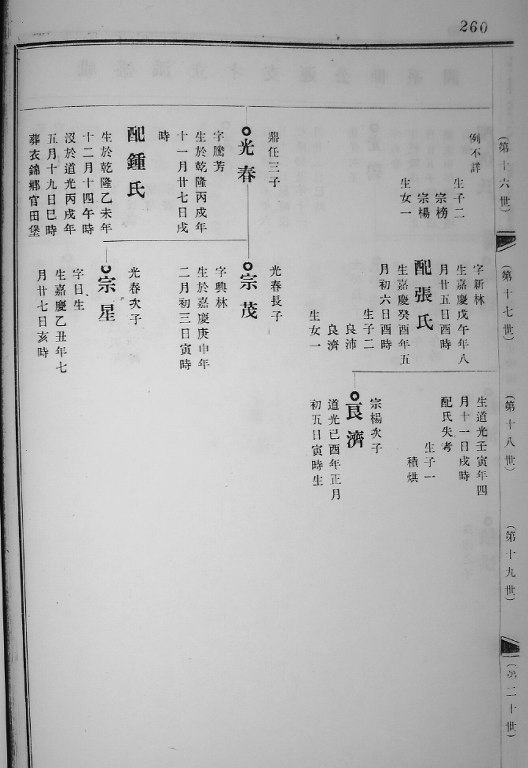 260
(第十六世)
例不詳
生子二
宗榜
宗楊
生女一
鼎任三子
光春
字騰芳
生於乾隆丙戌年
十一月廿七日戌
時
配鍾氏
生於乾隆乙未年
十二月十四午時
沒於道光丙戌年
五月十九日巳時
葬衣錦鄉官田堡
(第十七世)
字新林
生嘉慶戊午年八
月廿五日酉時
配張氏
生嘉慶癸酉年五
月初六日酉時
生子二
良沛
良濟
生女一
光春長子
宗茂
字興林
生於嘉慶庚申年
二月初三日寅時
光春次子
宗星
字日生
生嘉慶乙丑年七
月廿七日亥時
(第十八世)
生道光壬寅年四
月十一日戌時
配氏失考
生子一
積烘
宗楊次子
良濟
道光己酉年正月
初五日寅時生
(第十九世)
(第二十世)